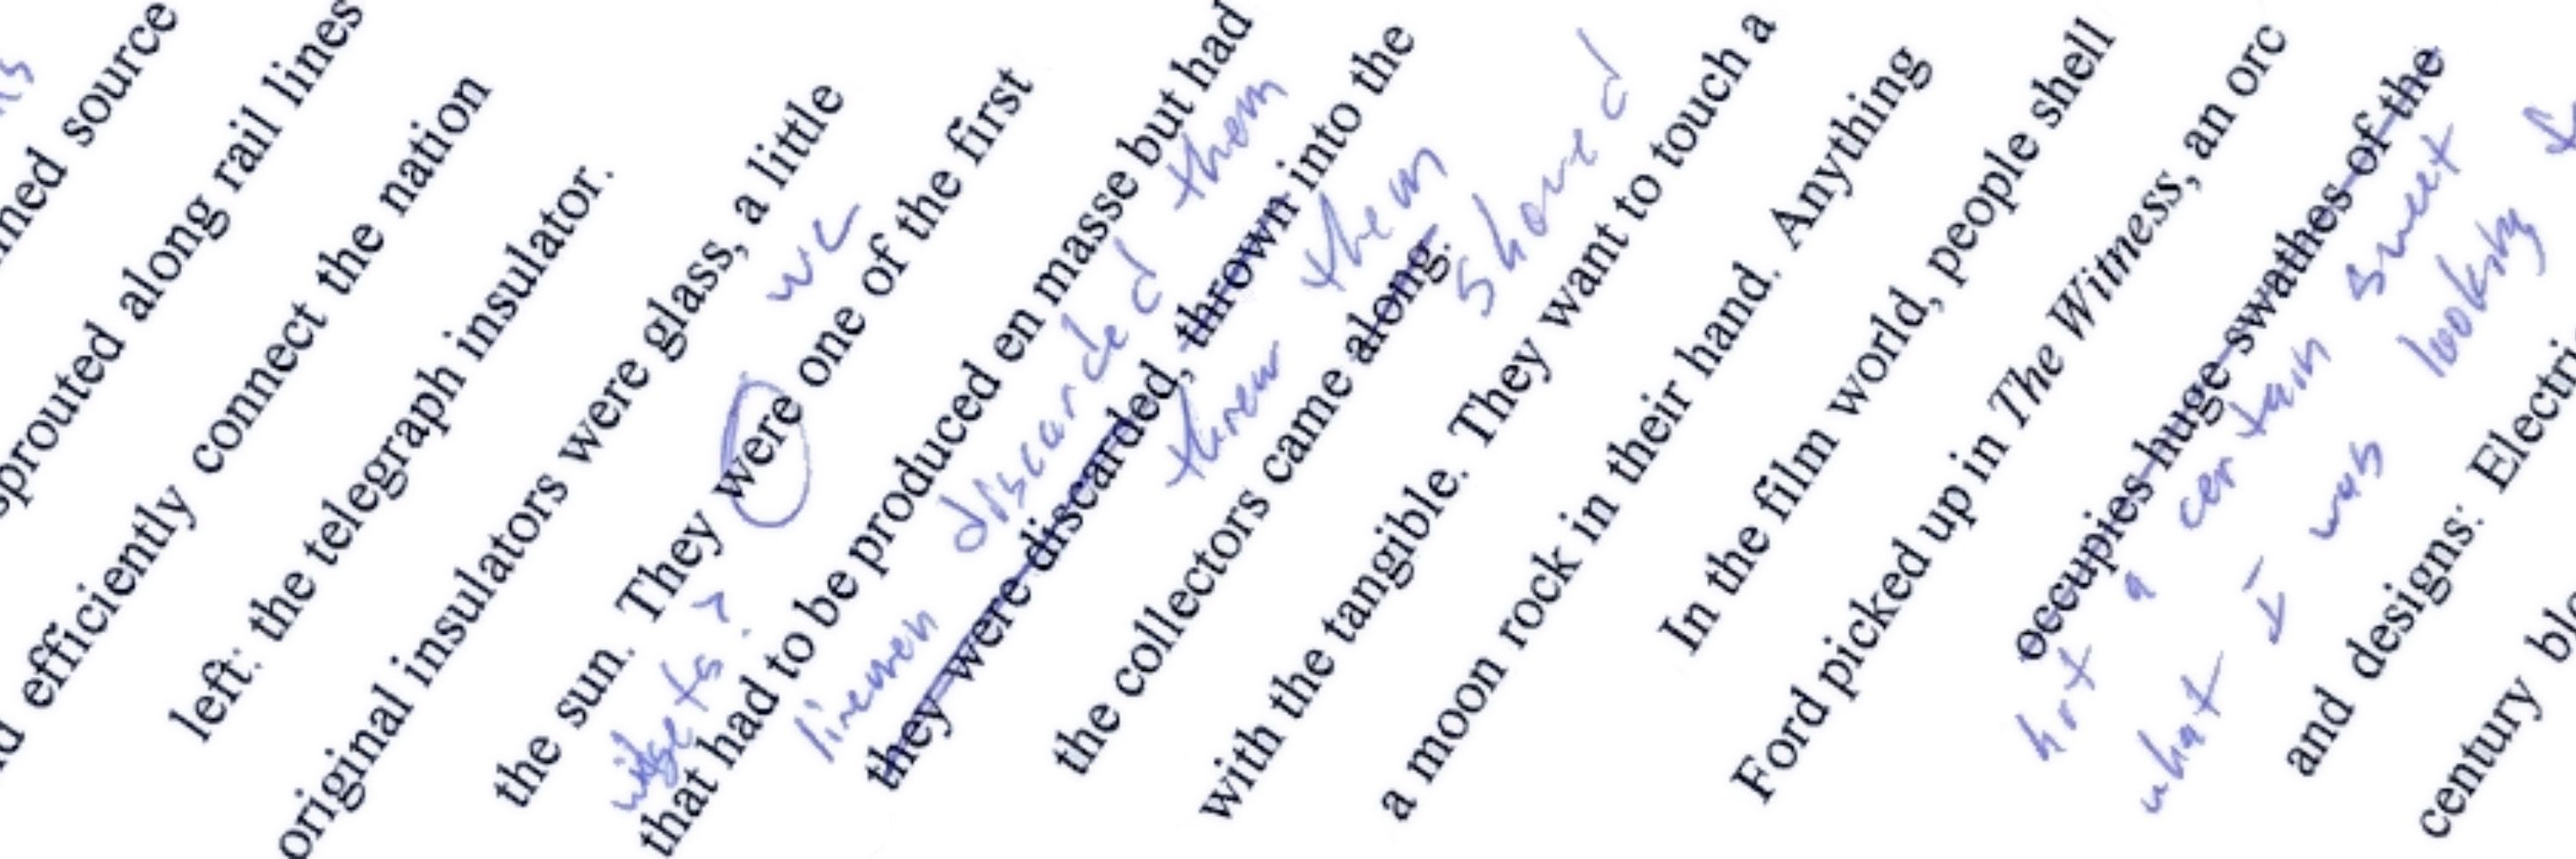 source
sprouted along rail lines
efficiently connect the nation
left: the telegraph insulator.
original insulators were glass, a little
wc
the sun. They were one of the first
widgets?
that had to be produced en masse but had
linemen discarded them
they were discarded, thrown into the
threw them
the collectors came along.
showed
with the tangible. They want to touch a
a moon rock in their hand. Anything
In the film world, people shell
Ford picked up in The Witness, an orc
occupies huge swathes of the
a certain sweet
what I was looking
and designs: Electri
century